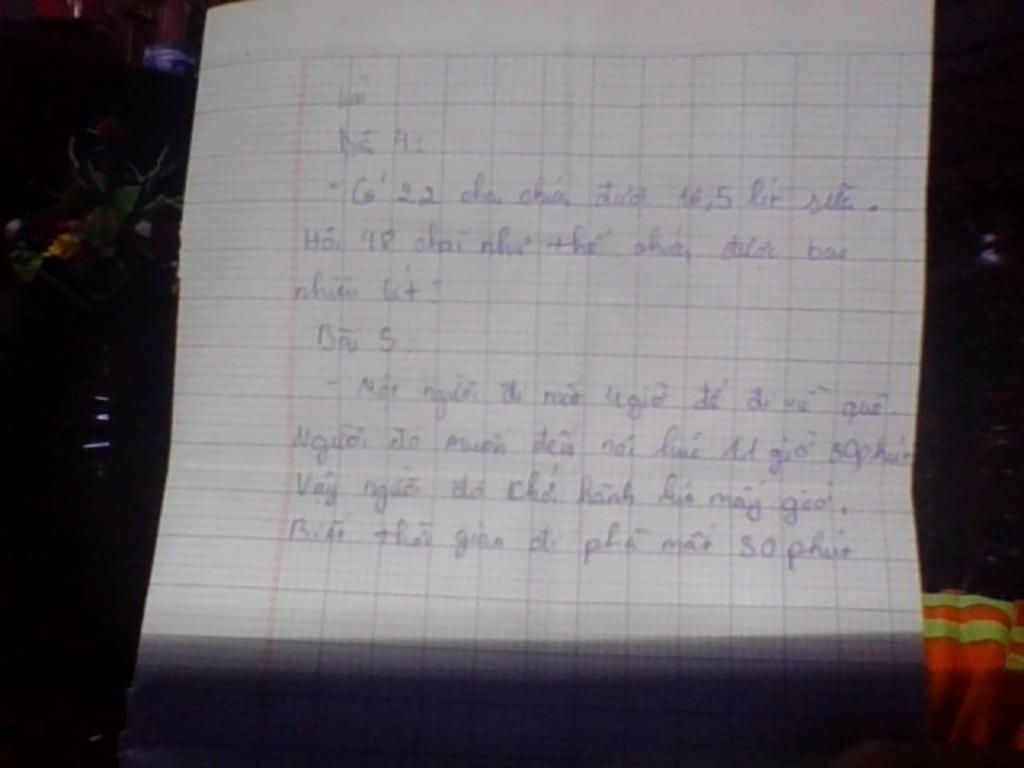 Bài 4:
- Có 22 chai chứa được 16,5 lít sữa.
Hỏi 48 chai như thế chứa được bao
nhiêu lít?
Bài 5
- Một người đi mất 4 giờ để đi về quê.
Người đó muốn đến nơi lúc 11 giờ 30 phút
Vậy người đó khởi hành lúc mấy giờ.
Biết thời gian đi phà mất 30 phút